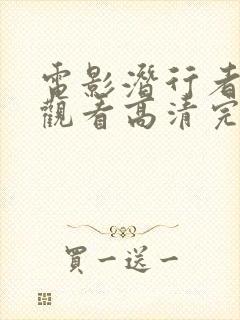 電影潛行者
觀看高清完
買一送一